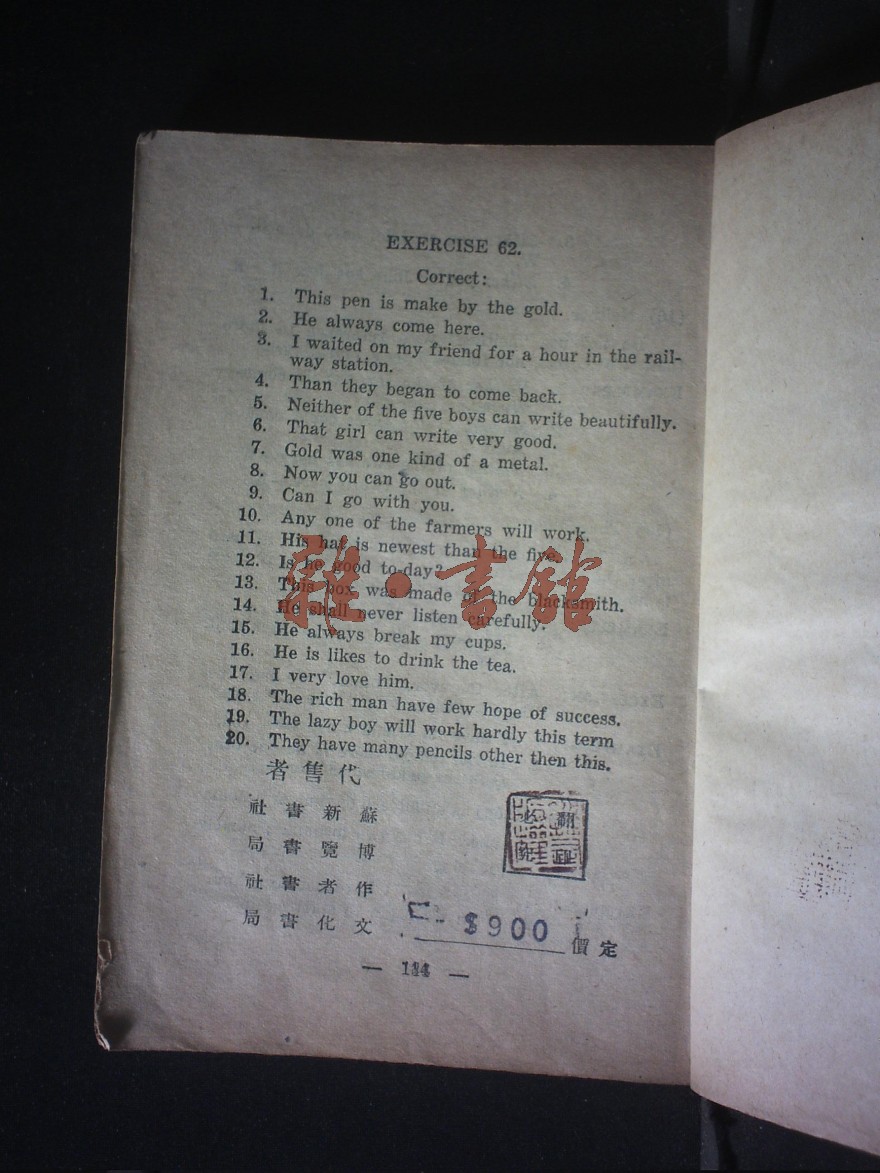 EXERCISE 62.
Correct:
1. This pen is make by the gold.
2. He always come here.
3. I waited on my friend for a hour in the rail-
way station.
4. Than they began to come back.
5. Neither of the five boys can write beautifully.
6. That girl can write very good.
7. Gold was one kind of a metal.
8. Now you can go out.
9. Can I go with you.
10. Any one of the farmers will work.
11. His hat is newest than the five.
12. Is he good to-day?
13. This box was made of the blacksmith.
14. He shall never listen carefully.
15. He always break my cups.
16. He is likes to drink the tea.
17. I very love him.
18. The rich man have few hope of success.
19. The lazy boy will work hardly this term
20. They have many pencils other then this.
雜·書館
代售者
蘇新書社
博覽書局
作者書社
文化書局
定價 $900
— 134 —